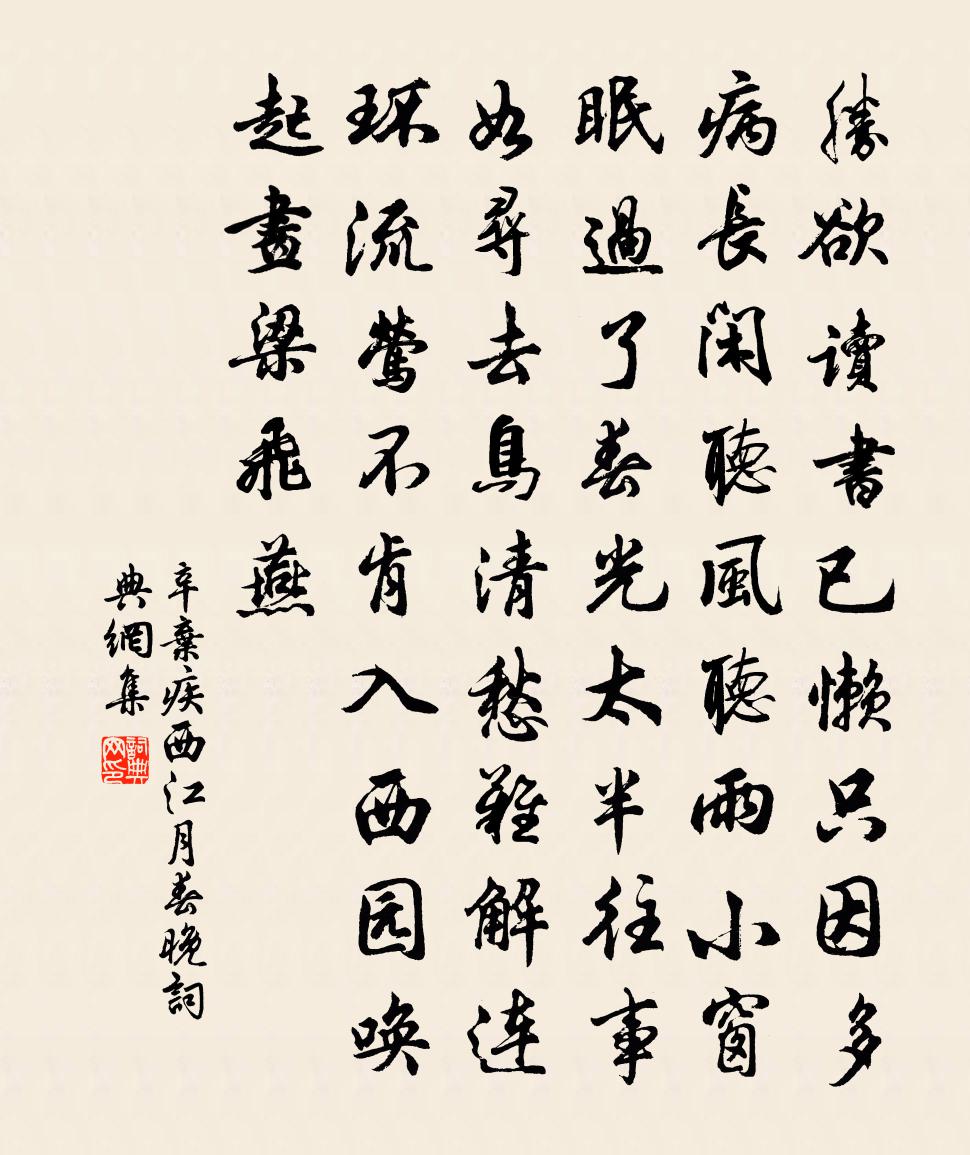 勝欲讀書已懶只因多
病長閑聽風聽雨小窗
眠過了春光太半往事
如尋去鳥清愁難解連
环流鶯不肯入西园唤
起畫梁飛燕
辛棄疾西江月春晚詞
典網集
詞典网印